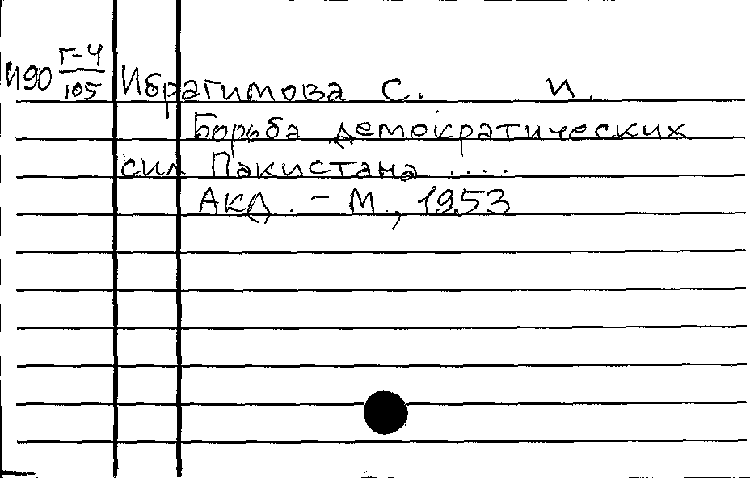 И90 Г-4/105 Ибрагимова С. И.
Борьба демократических
сил Пакистана ....
АКД. - М., 1953